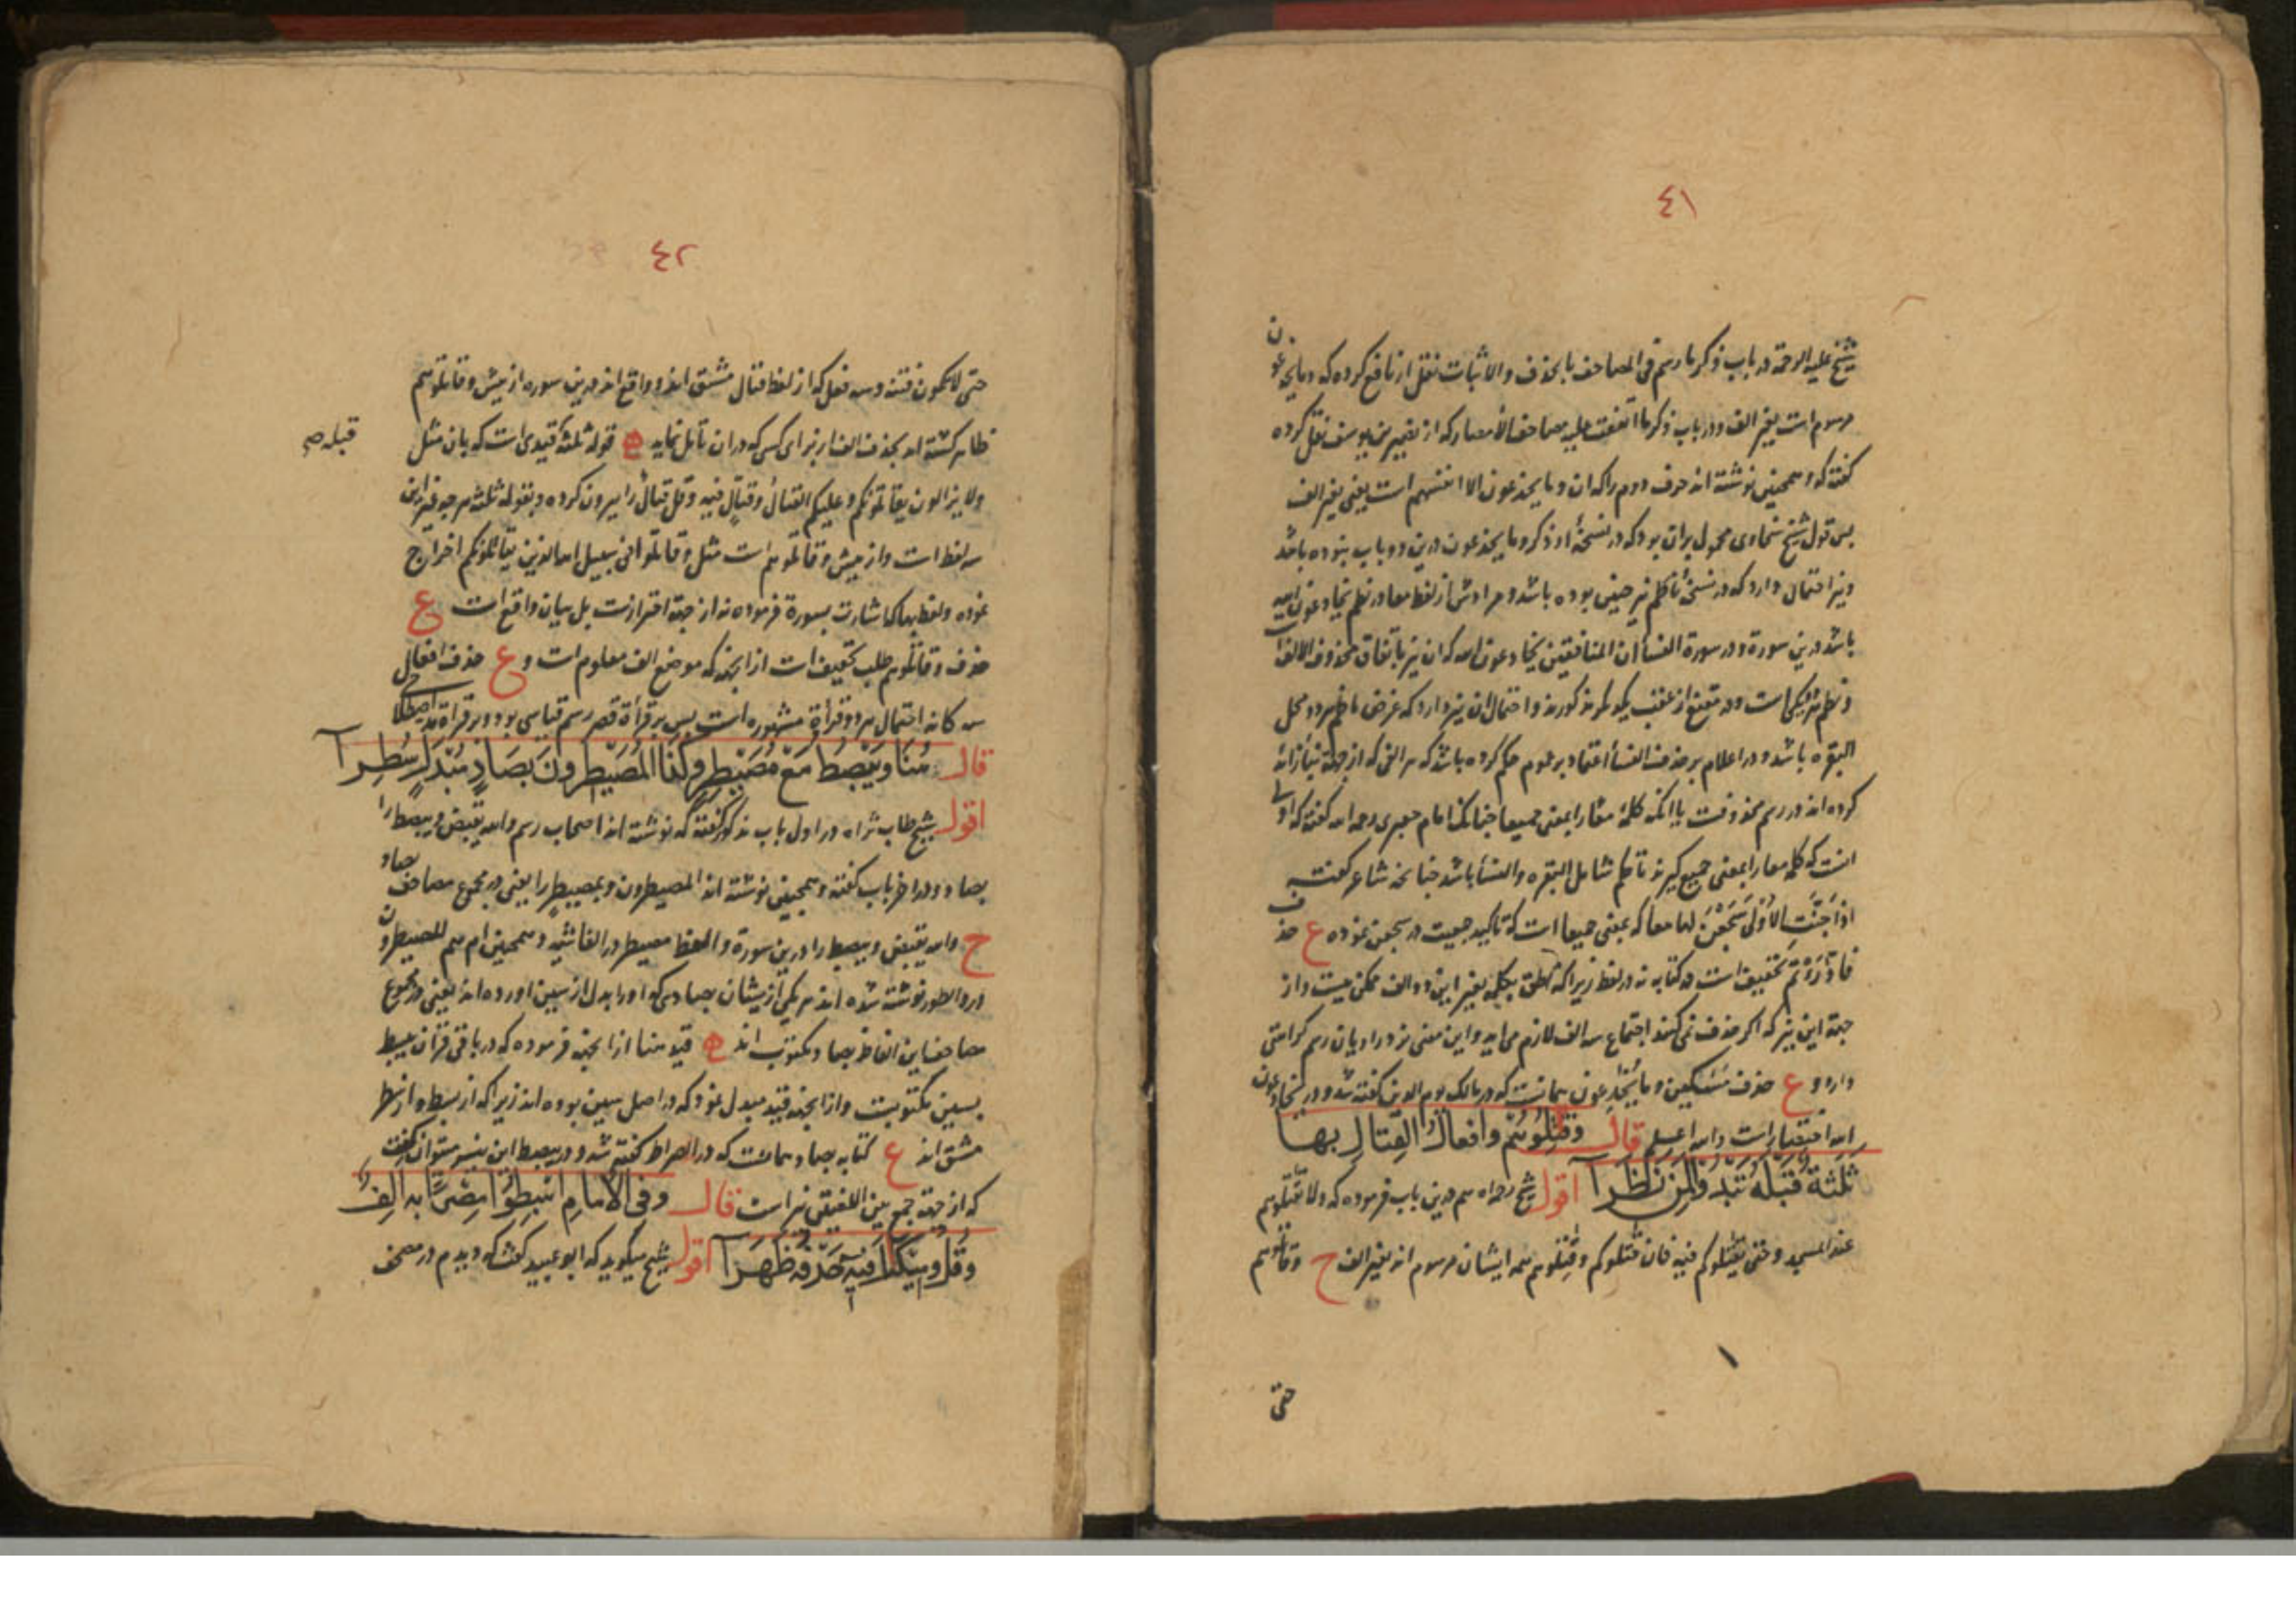 ٤١
شیخ علیه الرحمة در باب ذکر ما رسم فی المصاحف بالحذف والاثبات نقل از نافع کرده که وما یخدعون
مرسوم است بغیر الف ودر باب ذکر ما اتفقت علیه مصاحف الامصار که از نصیر بن یوسف نقل کرده
گفته که وهمچنین نوشته اند حرف دوم را که ان وما یخدعون الا انفسهم است یعنی بغیر الف
پس قول شیخ سخاوی محمول بران بود که در نسخهٔ او ذکر وما یخدعون درین دو باب نبوده باشد
ونیز احتمال دارد که در نسخهٔ ناظم نیز چنین بوده باشد ومرادش از لفظ معا در نظم یخادعون الله
باشد درین سورة ودر سورة النسأ ان المنافقین یخادعون الله که ان نیز باتفاق محذوف الالف
واحتمال ان نیز دارد که غرض ناظم هر دو محل
البقره باشد ودر اعلام بر حذف النسأ اعتماد بر عموم حکم کرده باشد که هر الفی که از جهة بنا زائد
کرده اند در رسم محذوفست یا انکه کلمهٔ معا را بمعنی جمیعا چنانک امام جعبری رحمه الله گفته که اولی
انست که کلمه معا را بمعنی جمیع گیرند تا حکم شامل البقره والنسأ باشد چنانچه شاعر گفته
اذا حنّت الاولی سجعن لها معا که بمعنی جمیعا است که تاکید جمعیت در سجعن نموده ع حذف
فادّرءتم تخفیف است در کتابه نه در لفظ زیرا که نطق بکلمه بغیر این دو الف ممکن نیست واز
جهة این نیز که اگر حذف نمی کنند اجتماع سه الف لازم می اید واین معنی نزد راویان رسم کراهتی
دارد و ع حذف مسٰکین وما یخٰدعون همانست که در مالک یوم الدین گفته شد ودر یخادعون
الله اختصار است والله اعلم قال وقٰتلوهم وافعال القتال بها
ثلثة قبله تبدو لمن نظرا اقول شیخ رحمه الله هم درین باب فرموده که ولا تقٰتلوهم
عند المسجد وحتی یقٰتلوکم فیه فان قٰتلوکم وقٰتلوهم همه ایشان مرسوم اند بغیر الف ح وقاتلوهم
حتی
٤٢
حتی لا تکون فتنة وسه فعل که از لفظ قتال مشتق اند وواقع اند درین سوره از پیش وقاتلوهم
ظاهر گشته اند بحذف الف از برای کسی که دران تأمل نماید قوله ثلثه قیدی است که بان مثل
قبله صح
ولا یزالون یقاتلونکم وعلیکم القتال وقتال فیه وقل قتال را بیرون کرده وبقوله ثلثه هر چه غیر این
سه لفظ است واز پیش وقاتلوهم است مثل وقاتلوا فی سبیل الله الذین یقاتلونکم اخراج
نموده ولفظ بها که اشارت بسورة فرموده نه از جهة احترازست بل بیان واقع است ع
حذف وقاتلوهم طلب تخفیف است ازانجهة که موضع الف معلوم است و ع حذف افعال
سه گانه احتمال هر دو قرأة مشهوره است پس بر قرأة قصر رسم قیاسی بود وبر قراة مد اصطلاحی
قال هنا ویبصط مع مصیطر وکذا المصیطرون بصاد مبدل سطرا
اقول شیخ طاب ثراه در اول باب مذکور گفته که نوشته اند اصحاب رسم والله یقبض ویبصط را
بصاد ودر اخر باب گفته وهمچنین نوشته اند المصیطرون وبمصیطر را یعنی در مجموع مصاحف بصاد
ح والله یقبض ویبصط را درین سورة ولفظ مصیطر در الغاشیه وهمچنین ام هم المصیطرون
در والطور نوشته شده اند هر یکی ازیشان بصادی که او را بدل از سین اورده اند یعنی در مجموع
مصاحف این الفاظ بصاد مکتوب اند قید هنا ازانجهة فرموده که در باقی قرآن یبسط
بسین مکتوبست وازانجهة قید مبدل نمود که در اصل سین بوده اند زیرا که از بسط واز سطر
مشتق اند ع کتابه بصاد همانست که در الصراط گفته شد ودر یبصط این نیز میتوان گفت
که از جهة جمع بین اللغتین نیز است قال وفی الامام اهبطوا مصرًا به الف
وقل ومیکٰل فیه حذفه ظهرا اقول شیخ میگوید که ابو عبید گفت که دیدم در مصحف